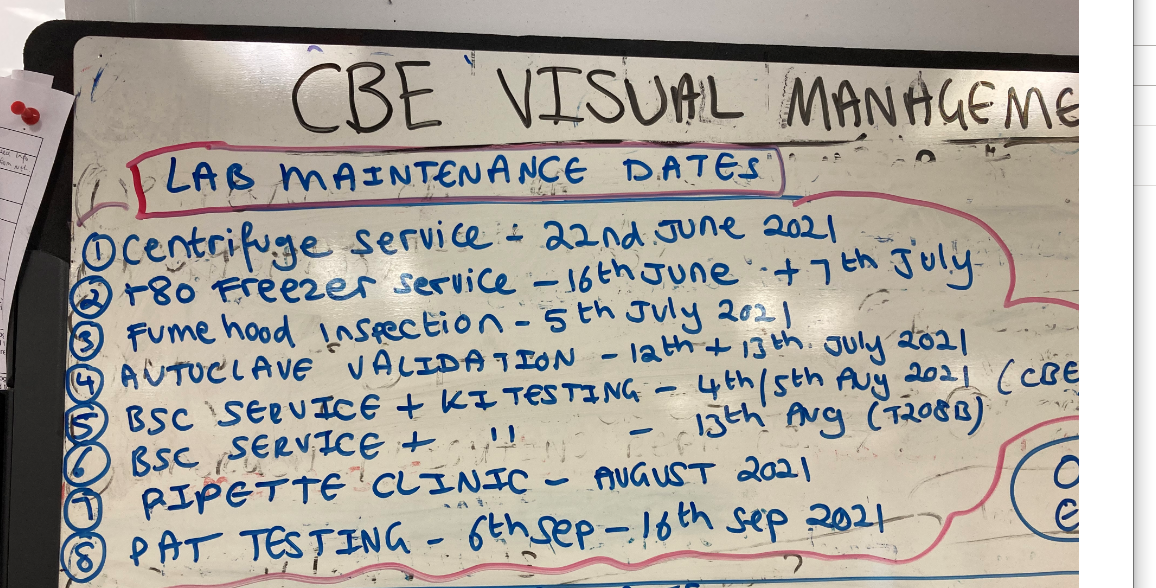 CBE VISUAL MANAGEME
LAB MAINTENANCE DATES
① Centrifuge service - 22nd June 2021
② -80 Freezer service - 16th June + 7th July
③ Fumehood Inspection - 5th July 2021
④ AUTOCLAVE VALIDATION - 12th + 13th July 2021
⑤ BSC SERVICE + KI TESTING - 4th/5th Aug 2021 (CBE
⑥ BSC SERVICE + " - 13th Aug (T208B)
⑦ PIPETTE CLINIC - AUGUST 2021
⑧ PAT TESTING - 6th Sep - 16th Sep 2021